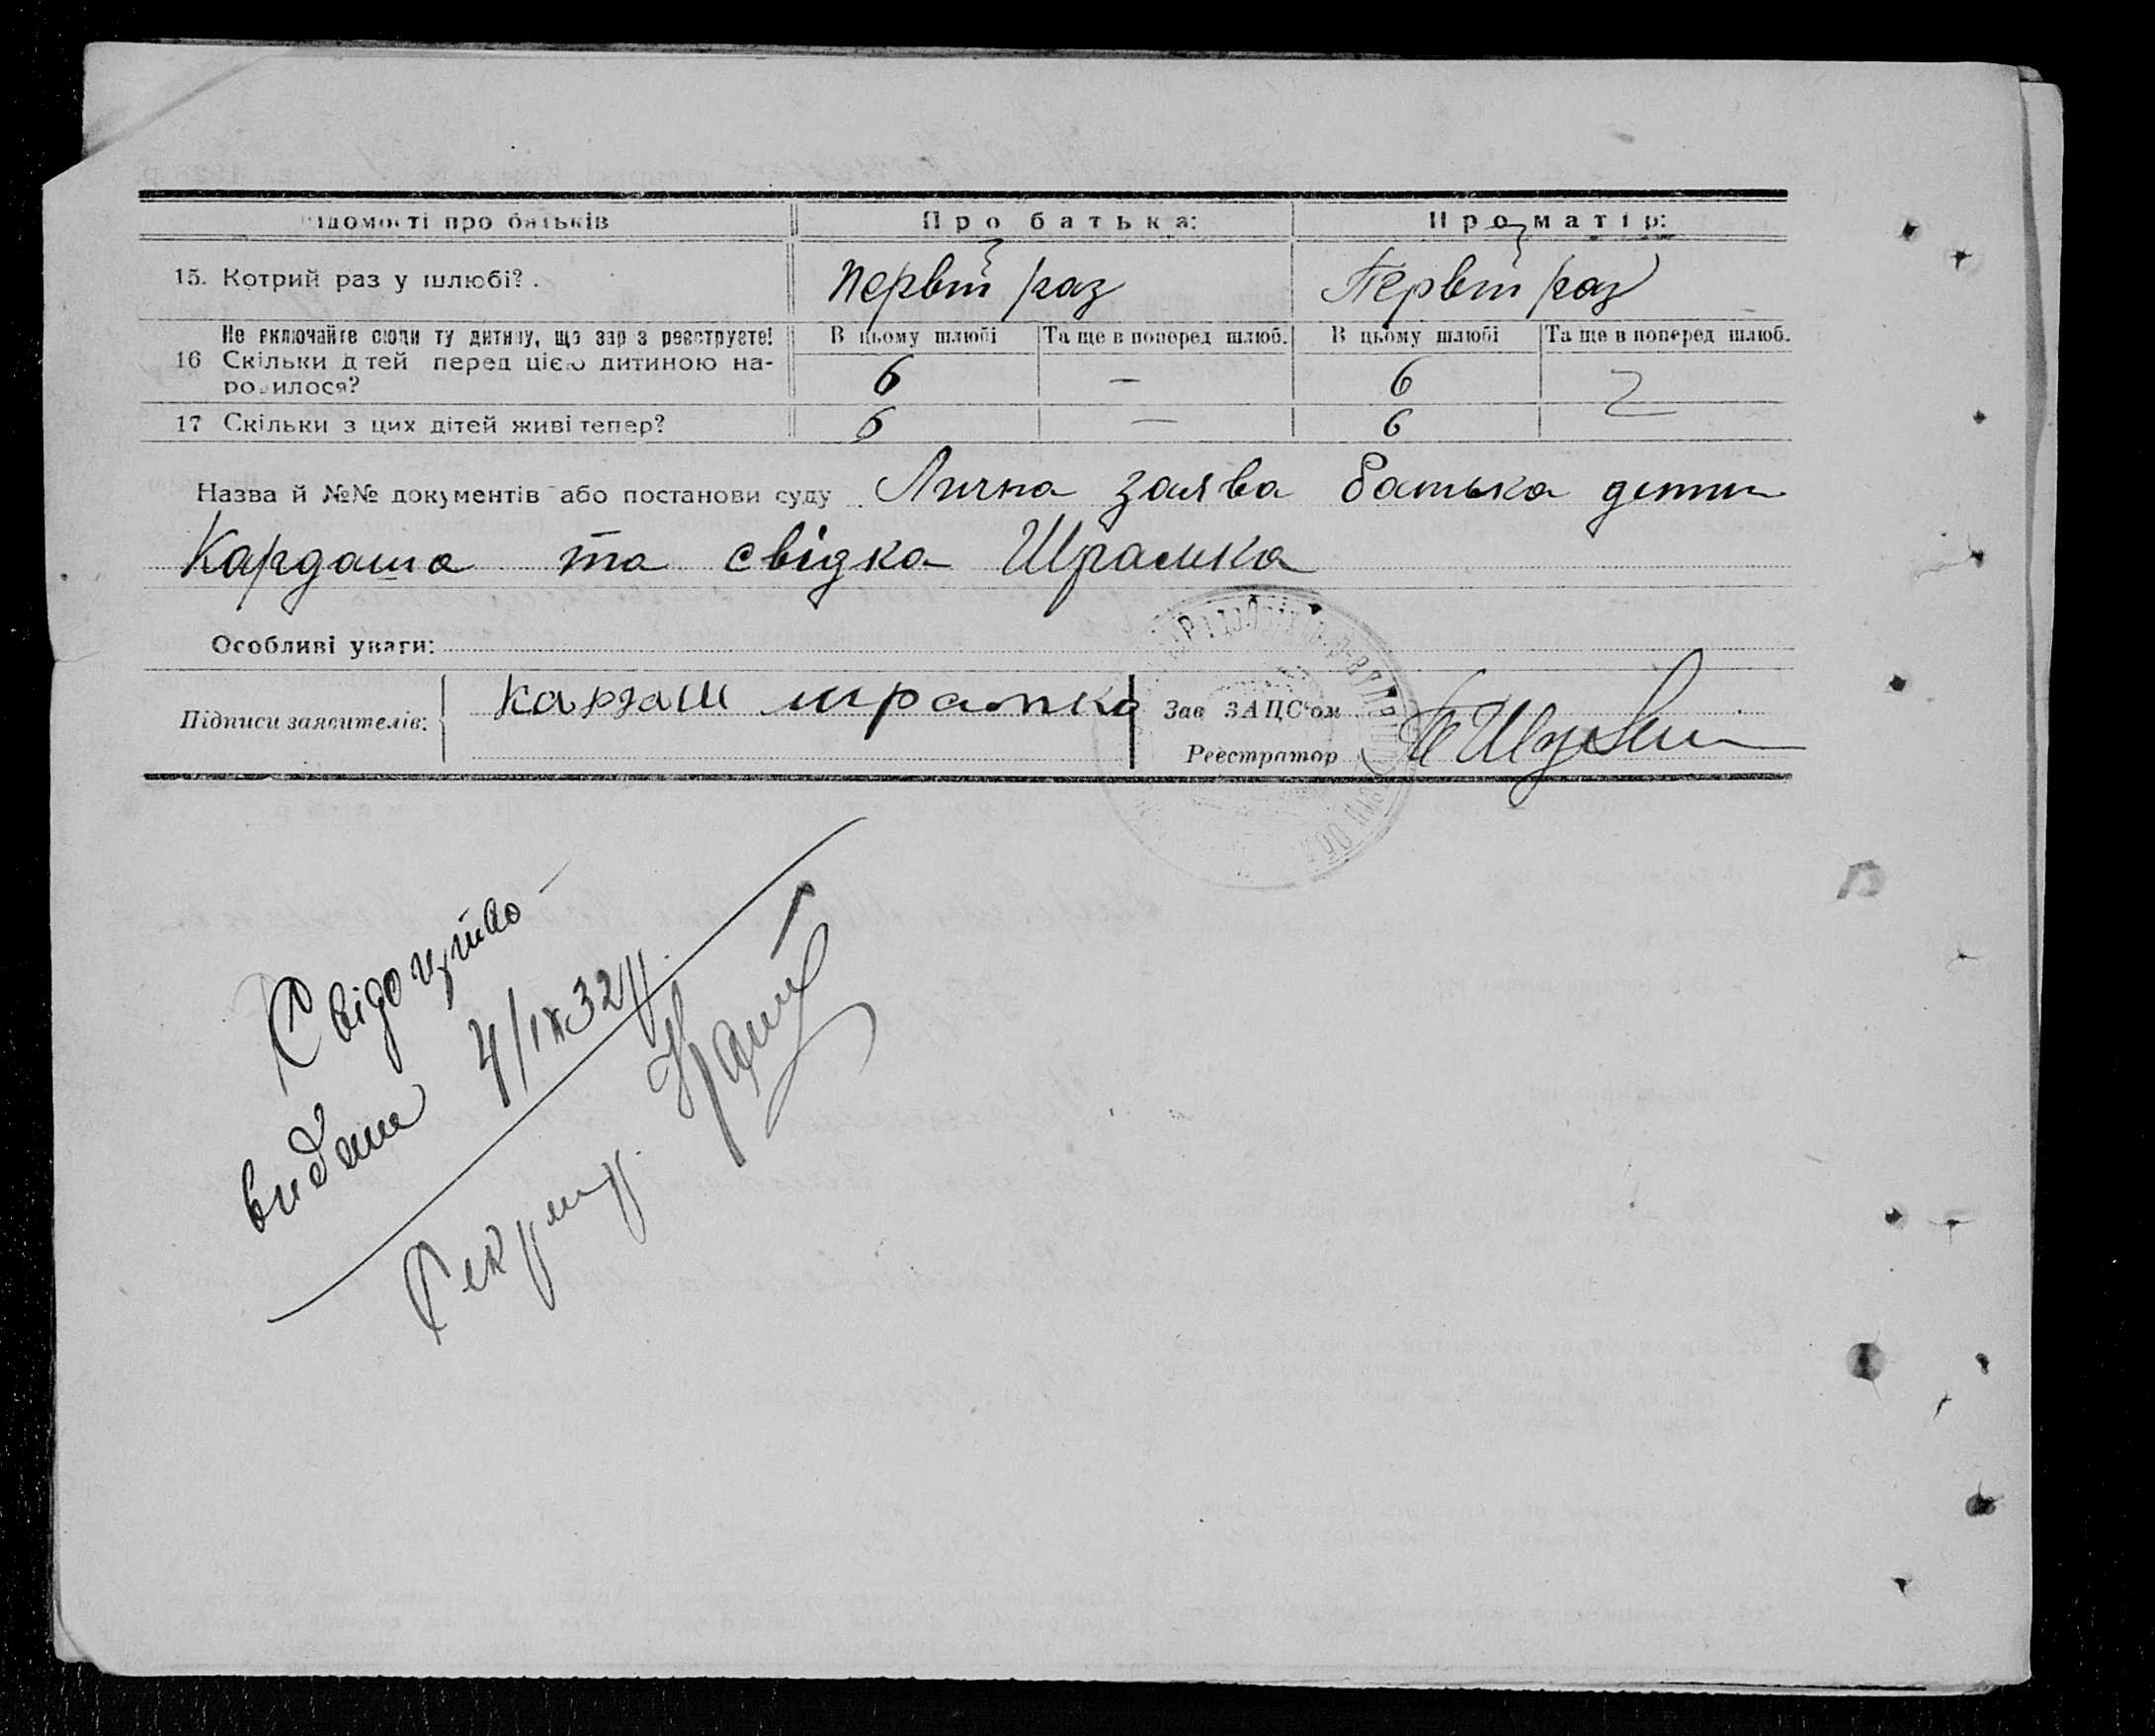 ідомості про батьків Про батька: Про матір:
15. Котрий раз у шлюбі? . первий раз Первий раз
Не включайте сюди ту дитину, що зараз реєструєте! В цьому шлюбі Та ще в поперед шлюб. В цьому шлюбі Та ще в поперед шлюб.
16 Скільки дітей перед цією дитиною на- 6 — 6
родилося?
17 Скільки з цих дітей живі тепер? 6 — 6
Назва й №№ документів або постанови суду Лична заява батька
Кардаша та свідка Шрамка
Особливі уваги:
Підписи заявителів: кардаш шрамко Зав ЗАЦС'ом
Реєстратор
Свідоцтво
видане 4/IX 32 р.